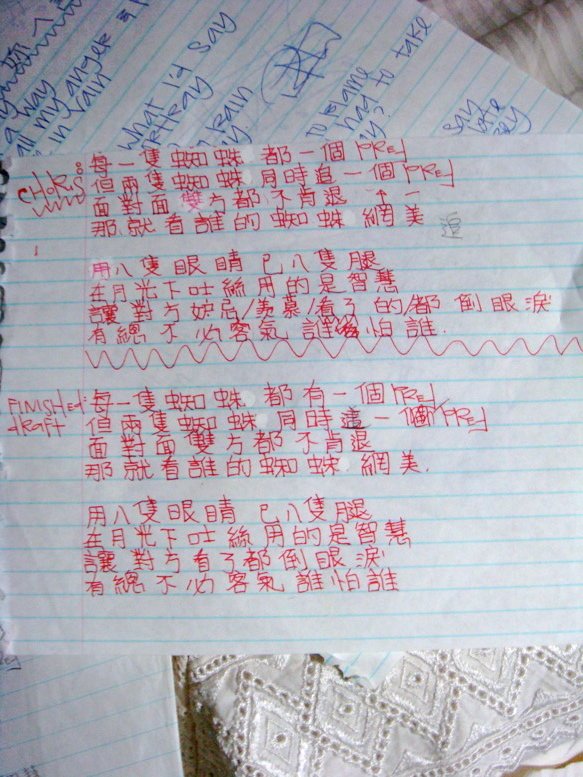 a way
all my anger & f
in vain
what I'd say
rain
to blame
had to take
say
CHORUS:
每一隻蜘蛛 都一個「PRE」
但兩隻蜘蛛月時追一個「PRE」
面對面雙方都不肯退 ↑ 一
那就看誰的蜘蛛網美 追
用八隻眼睛 已八隻腿
在月光下吐絲用的是智慧
讓對方妒忌/羨慕/看了的/都倒眼淚
有總不必客氣誰怕誰.
FINISHED draft
每一隻蜘蛛都有一個「PRE」
但兩隻蜘蛛月時追一個「PRE」
面對面雙方都不肯退
那就看誰的蜘蛛網美.
用八隻眼睛 已八隻腿
在月光下吐絲用的是智慧
讓對方看了都倒眼淚
有總不必客氣誰怕誰